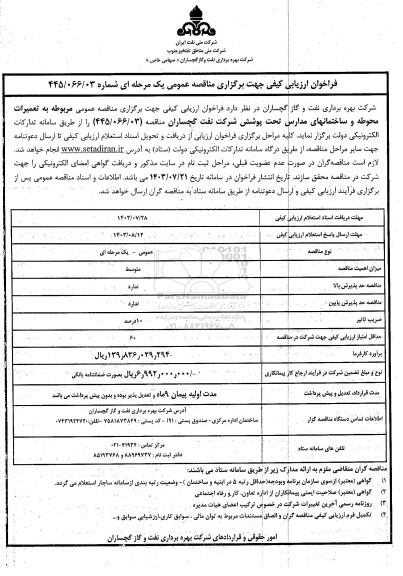 شرکت ملی نفت ایران
شرکت ملی مناطق نفتخیز جنوب
شرکت بهره برداری نفت و گاز گچساران « سهامی خاص »
فراخوان ارزیابی کیفی جهت برگزاری مناقصه عمومی یک مرحله ای شماره ۴۴۵/۰۶۶/۰۳
شرکت بهره برداری نفت و گاز گچساران در نظر دارد فراخوان ارزیابی کیفی جهت برگزاری مناقصه عمومی مربوطه به تعمیرات
محوطه و ساختمانهای مدارس تحت پوشش شرکت نفت گچساران مناقصه (۴۴۵/۰۶۶/۰۳) را از طریق سامانه تدارکات
الکترونیکی دولت برگزار نماید. کلیه مراحل برگزاری فراخوان ارزیابی از دریافت و تحویل اسناد استعلام ارزیابی کیفی تا ارسال دعوتنامه
جهت سایر مراحل مناقصه، از طریق درگاه سامانه تدارکات الکترونیکی دولت (ستاد) به آدرس www.setadiran.ir انجام خواهد شد.
لازم است مناقصه‌گران در صورت عدم عضویت قبلی، مراحل ثبت نام در سایت مذکور و دریافت گواهی امضای الکترونیکی را جهت
شرکت در مناقصه محقق سازند. تاریخ انتشار فراخوان در سامانه تاریخ ۱۴۰۳/۰۷/۲۱ می باشد. اطلاعات و اسناد مناقصه عمومی پس از
برگزاری فرآیند ارزیابی کیفی و ارسال دعوتنامه از طریق سامانه ستاد به مناقصه گران ارسال خواهد شد.
مهلت دریافت اسناد استعلام ارزیابی کیفی ۱۴۰۳/۰۷/۲۸
مهلت ارسال پاسخ استعلام ارزیابی کیفی ۱۴۰۳/۰۸/۱۲
نوع مناقصه عمومی - یک مرحله ای
میزان اهمیت مناقصه متوسط
مناقصه حد پذیرش بالا ندارد
مناقصه حد پذیرش پایین ندارد
ضریب تاثیر ۱۰درصد
حداقل امتیاز ارزیابی کیفی جهت شرکت در مناقصه ۶۰
برآورد کارفرما ۱۳۹,۸۳۶,۰۲۹,۲۹۴ریال
نوع و مبلغ تضمین شرکت در فرآیند ارجاع کار پیمانکاری ۶,۹۹۲,۰۰۰,۰۰۰/-ریال بصورت ضمانتنامه بانکی
مدت قرارداد، تعدیل و پیش پرداخت مدت اولیه پیمان ۹ماه و تعدیل پذیر بوده و بدون پیش پرداخت می باشد
اطلاعات تماس دستگاه مناقصه گزار آدرس شرکت بهره برداری نفت و گاز گچساران
ساختمان اداره مرکزی- صندوق پستی : ۱۹۱ - کد پستی :
تلفن های سامانه ستاد مرکز تماس : ۴۱۹۳۴-۰۲۱
دفتر ثبت نام : ۸۸۹۶۹۷۳۷ و ۸۵۱۹۳۷۶۸
مناقصه گران متقاضی ملزم به ارائه مدارک زیر از طریق سامانه ستاد می باشند:
۱) گواهی (معتبر) ازسوی سازمان برنامه وبودجه(حداقل رتبه ۵ در ابنیه و ساختمان ) - وضعیت رتبه بندی ازسامانه ساجار استعلام می گردد.
۲) گواهی (معتبر) صلاحیت ایمنی پیمانکاران از اداره تعاون، کار و رفاه اجتماعی
۳) روزنامه رسمی آخرین تغییرات شرکت در خصوص ترکیب امضای هیات مدیره
۴) تکمیل فرم ارزیابی کیفی مناقصه گران و الصاق مستندات مربوط به توان مالی ، سوابق کاری،ارزشیابی سوابق و...
امور حقوقی و قراردادهای شرکت بهره برداری نفت و گاز گچساران